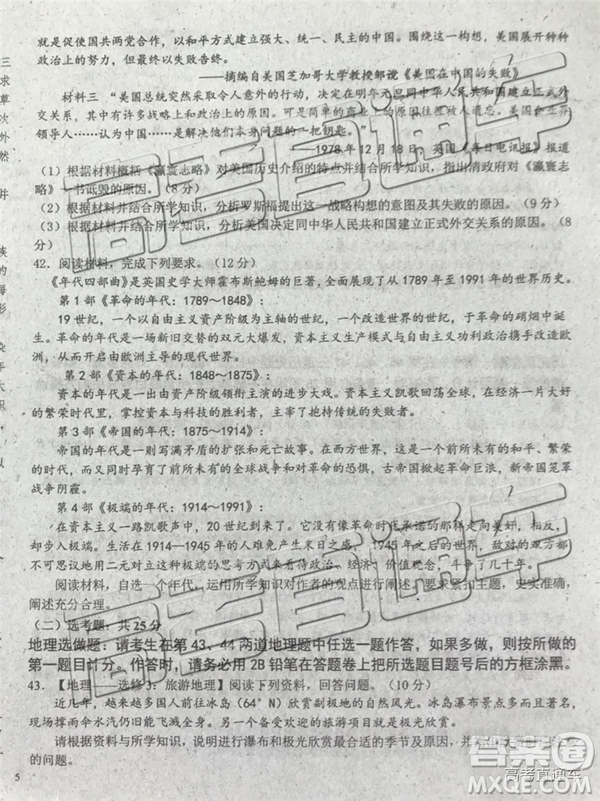 就是促使国共两党合作，以和平方式建立一个强大、统一、民主的中国。围绕这一构想，美国开展种种
政治上的努力，但最终以失败告终。
——摘编自美国芝加哥大学教授邹谠《美国在中国的失败》
材料三 “美国总统突然采取令人意外的行动，决定在明年元旦同中华人民共和国建立正式外
交关系，其中有许多战略上和政治上的原因
领导人……认为中国……是解决他们本身问题的一把钥匙。
1978年12月18日，英国《每日电讯报》报道
（1）根据材料概括《瀛寰志略》对美国历史介绍的特点并结合所学知识，指出清政府对《瀛寰志
略》一书诋毁的原因。（8分）
（2）根据材料并结合所学知识，分析罗斯福提出这一战略构想的意图及其失败的原因。（9分）
（3）根据材料并结合所学知识，分析美国决定同中华人民共和国建立正式外交关系的原因。（8
分）
42. 阅读材料，完成下列要求。（12分）
《年代四部曲》是英国史学大师霍布斯鲍姆的巨著，全面展现了从1789年至1991年的世界历史。
第1部《革命的年代：1789~1848》：
19世纪，一个以自由主义资产阶级为主的世纪，一个改造世界的世纪，于革命的硝烟中诞
生。革命的年代是一场新旧交替的双元大爆发，资本主义生产模式与自由主义功利政治携手改造欧
洲，从而开启由欧洲主导的现代世界。
第2部《资本的年代：1848~1875》：
资本的年代是一出由资产阶级领衔主演的进步大戏。资本主义凯歌回荡全球，在经济一片大好
的繁荣时代里，掌控资本与科技的胜利者，主宰了摇尾乞怜的传统的失败者。
第3部《帝国的年代：1875~1914》：
帝国的年代，是一则写满了矛盾的扩张和死亡故事。在西方世界，这是一个前所未有的和平、繁荣
的时代，而又无可避免地孕育了一个前所未有的全球战争和对革命的恐惧。古典帝国掀起革命巨浪，新帝国带来战
争阴霾。
第4部《极端的年代：1914~1991》：
在资本主义一路凯歌声中，20世纪到来了。它没有像革命年代承诺的那样走向美好，却是一
出灾难。生活在1914—1945年的人难免产生末日之感，
不可思议地用二元对立这种极端的思维来看待政治、经济乃至社会，争斗了几十年。
阅读材料，自选一个年代，运用所学知识对作者的观点进行阐述。（要求紧扣主题，史实准确，
阐述充分合理。
（二）选考题：共25分
地理选做题：请考生在第43、44两道地理题中任选一题作答，如果多做，则按所做的
第一题目计分。作答时，请务必用2B铅笔在答题卷上把所选题目题号后的方框涂黑。
43. 【地理——选修3：旅游地理】阅读下列资料，回答问题。（10分）
近几年，越来越多国人前往冰岛（64°N）欣赏副极地的独特景色。冰岛瀑布景点多而且著名，
雨中或伞外漫步仍旧能飞溅全身。另一个备受欢迎的旅游项目就是极光欣赏。
请根据资料与所学知识，说明进行瀑布和极光欣赏最适合的季节及原因，并
的问题。
5
高考直通车
答案圈